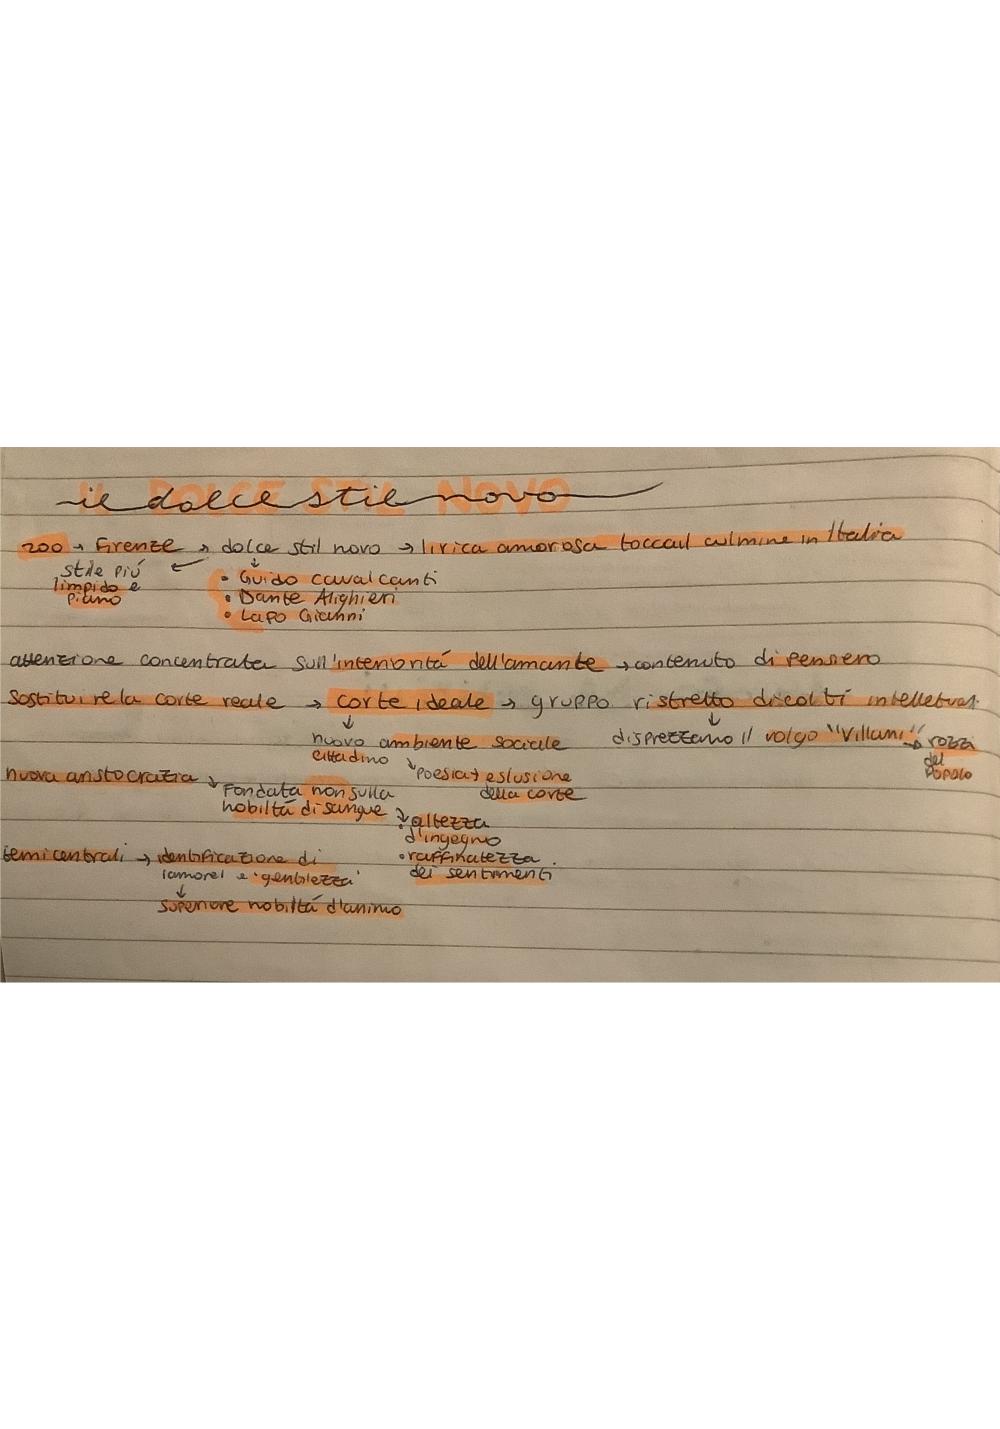 il dolce stil novo
200 → Firenze → dolce stil novo → lirica amorosa tocca il culmine in Italia
stile piú
limpido e
piano
• Guido cavalcanti
• Dante Alighieri
• Lapo Gianni
attenzione concentrata sull'interioritá dell'amante → contenuto di pensiero
Sostituire la corte reale → corte ideale → gruppo ristretto di colti intellettuali
nuovo ambiente sociale
cittadino
disprezzano il volgo "Villani" → rozzi
del
popolo
→ poesia + eslusione
della corte
nuova aristocrazia → Fondata non sulla
nobiltá di sangue
• altezza
d'ingegno
• raffinatezza
dei sentimenti
temi centrali → identificazione di
l'amore e 'gentilezza'
superiore nobiltá d'animo